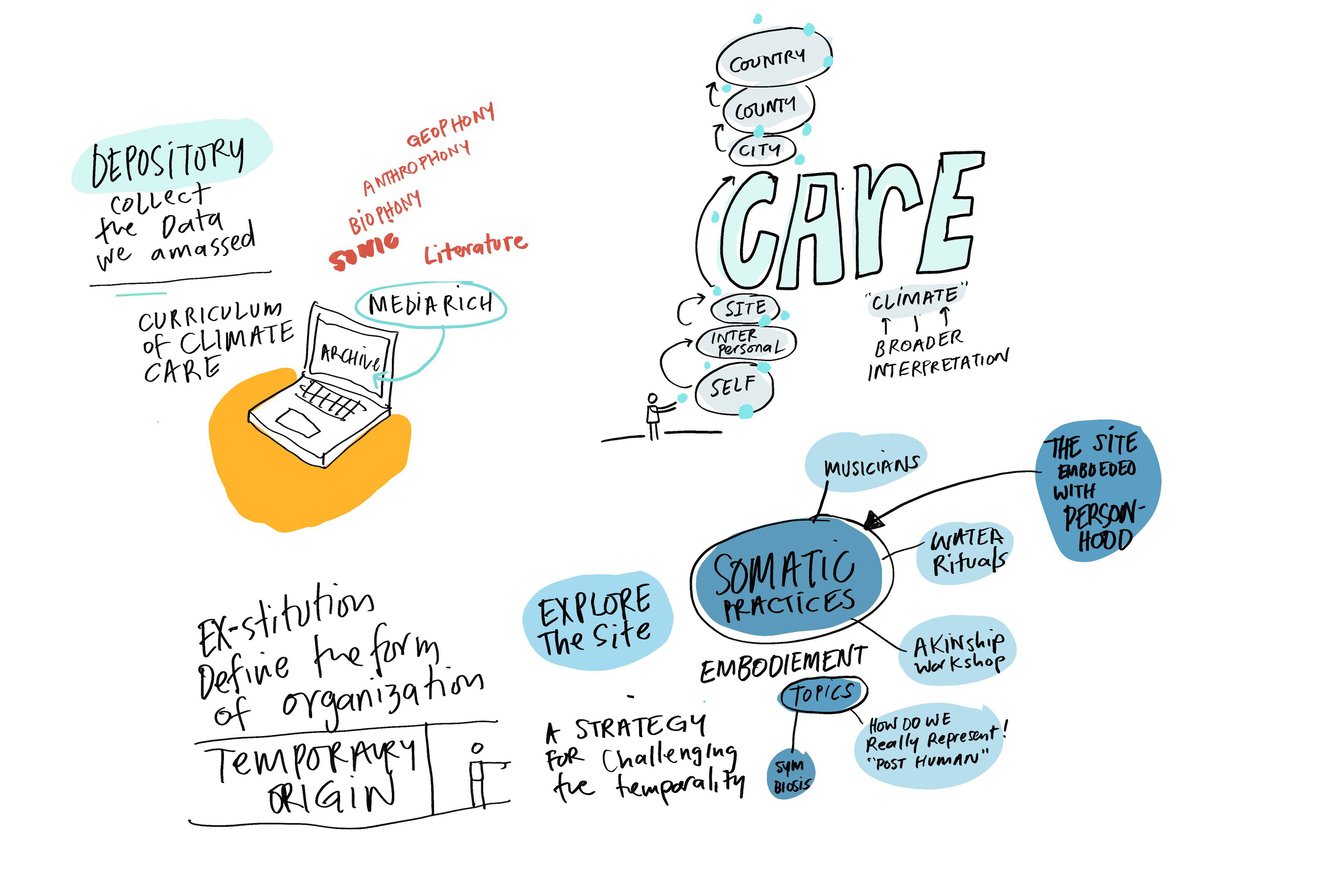 DEPOSITORY
collect
the Data
we amassed
CURRICULUM
OF CLIMATE
CARE
GEOPHONY
ANTHROPHONY
BIOPHONY
SONIC
Literature
MEDIA RICH
ARCHIVE
COUNTRY
COUNTY
CITY
CARE
SITE
INTER
Personal
SELF
"CLIMATE"
BROADER
INTERPRETATION
MUSICIANS
THE SITE
EMBDEDED
WITH
PERSON-
HOOD
SOMATIC
PRACTICES
WATER
Rituals
AKINship
Workshop
EXPLORE
The Site
EMBODIEMENT
TOPICS
HOW DO WE
Really Represent!
"POST HUMAN"
SYM
BIOSIS
EX-stitution
Define the form
of organization
TEMPORARY
ORIGIN
A STRATEGY
FOR Challenging
the temporality